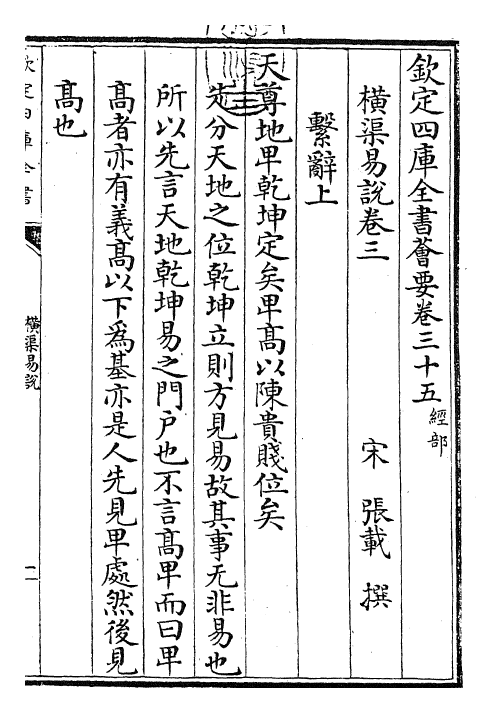 欽定四庫全書薈要卷三十五 經部
橫渠易說卷三
宋 張載 撰
繫辭上
天尊地卑乾坤定矣卑髙以陳貴賤位矣
先分天地之位乾坤立則方見易故其事无非易也
所以先言天地乾坤易之門户也不言髙卑而曰卑
髙者亦有義髙以下為基亦是人先見卑處然後見
髙也
欽定四庫全書
橫渠易說